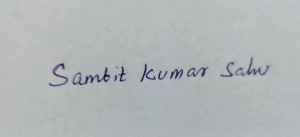 Sambit Kumar Sahu